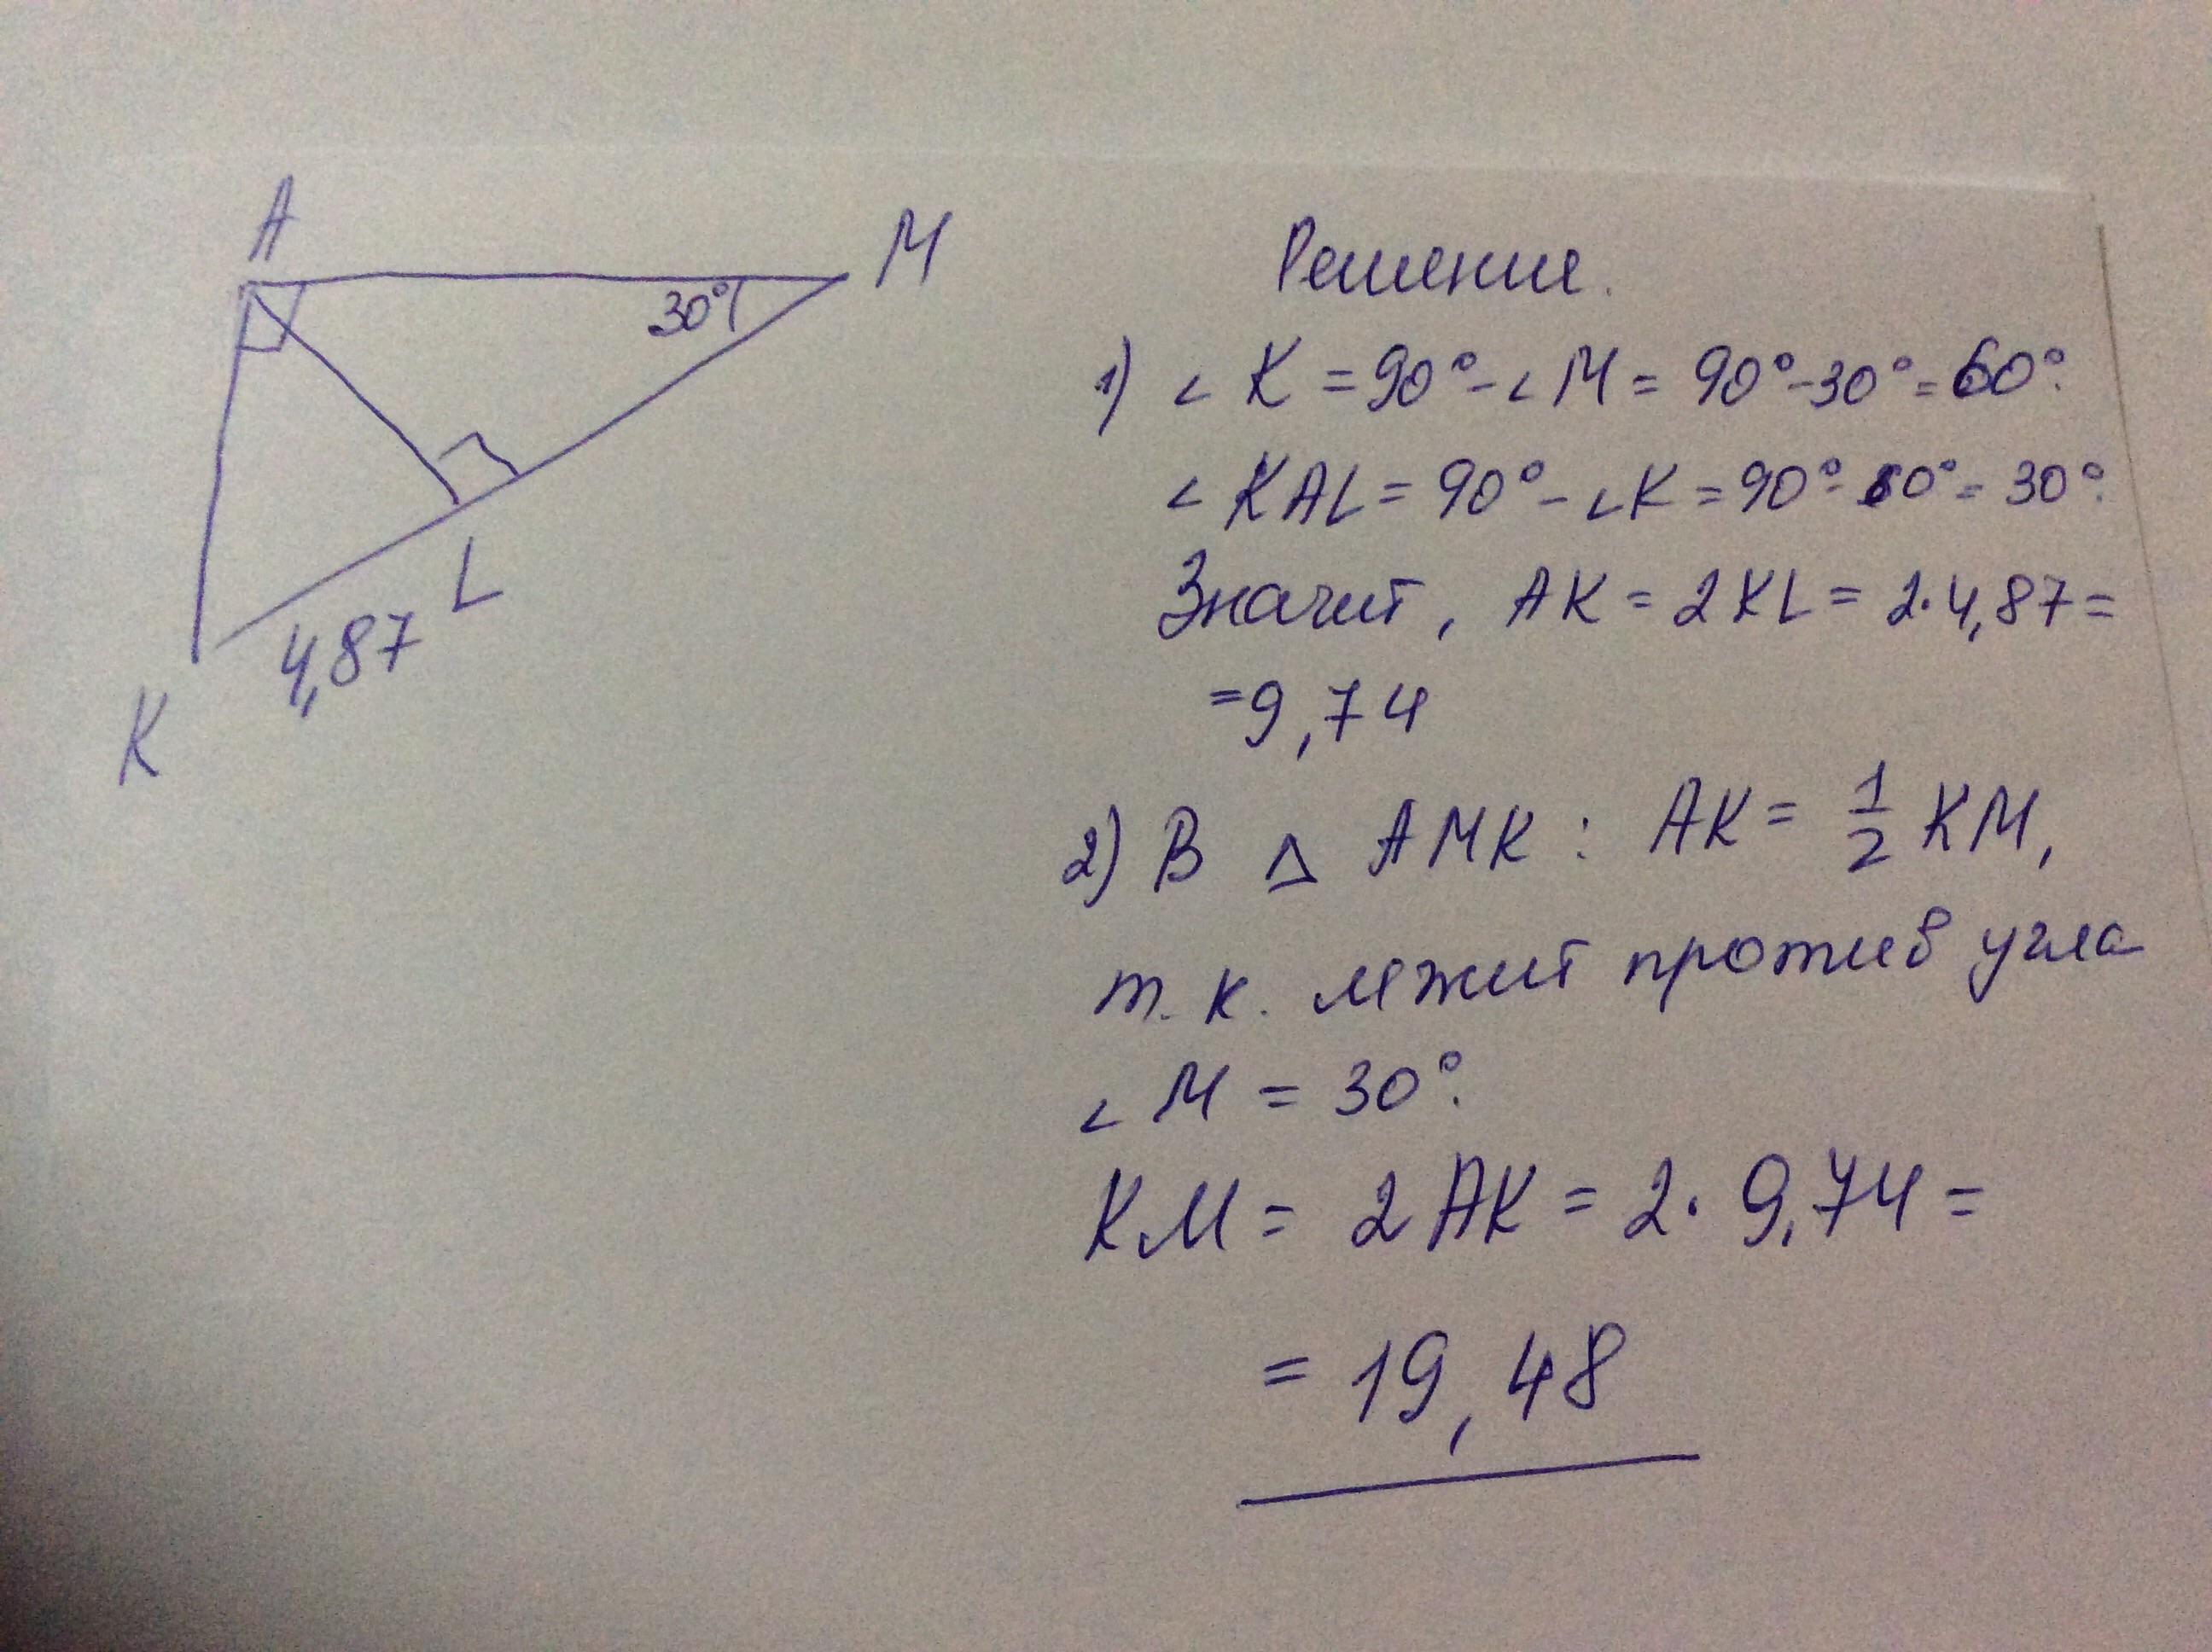 A
M
30°
L
4,87
K
Решение.
1) ∠ K = 90° - ∠ M = 90° - 30° = 60°.
∠ KAL = 90° - ∠K = 90° - 60° = 30°.
Значит, AK = 2KL = 2·4,87 =
= 9,74
2) В Δ AMK : AK = 1/2 KM,
т. к. лежит против угла
∠ M = 30°.
KM = 2AK = 2·9,74 =
= 19,48